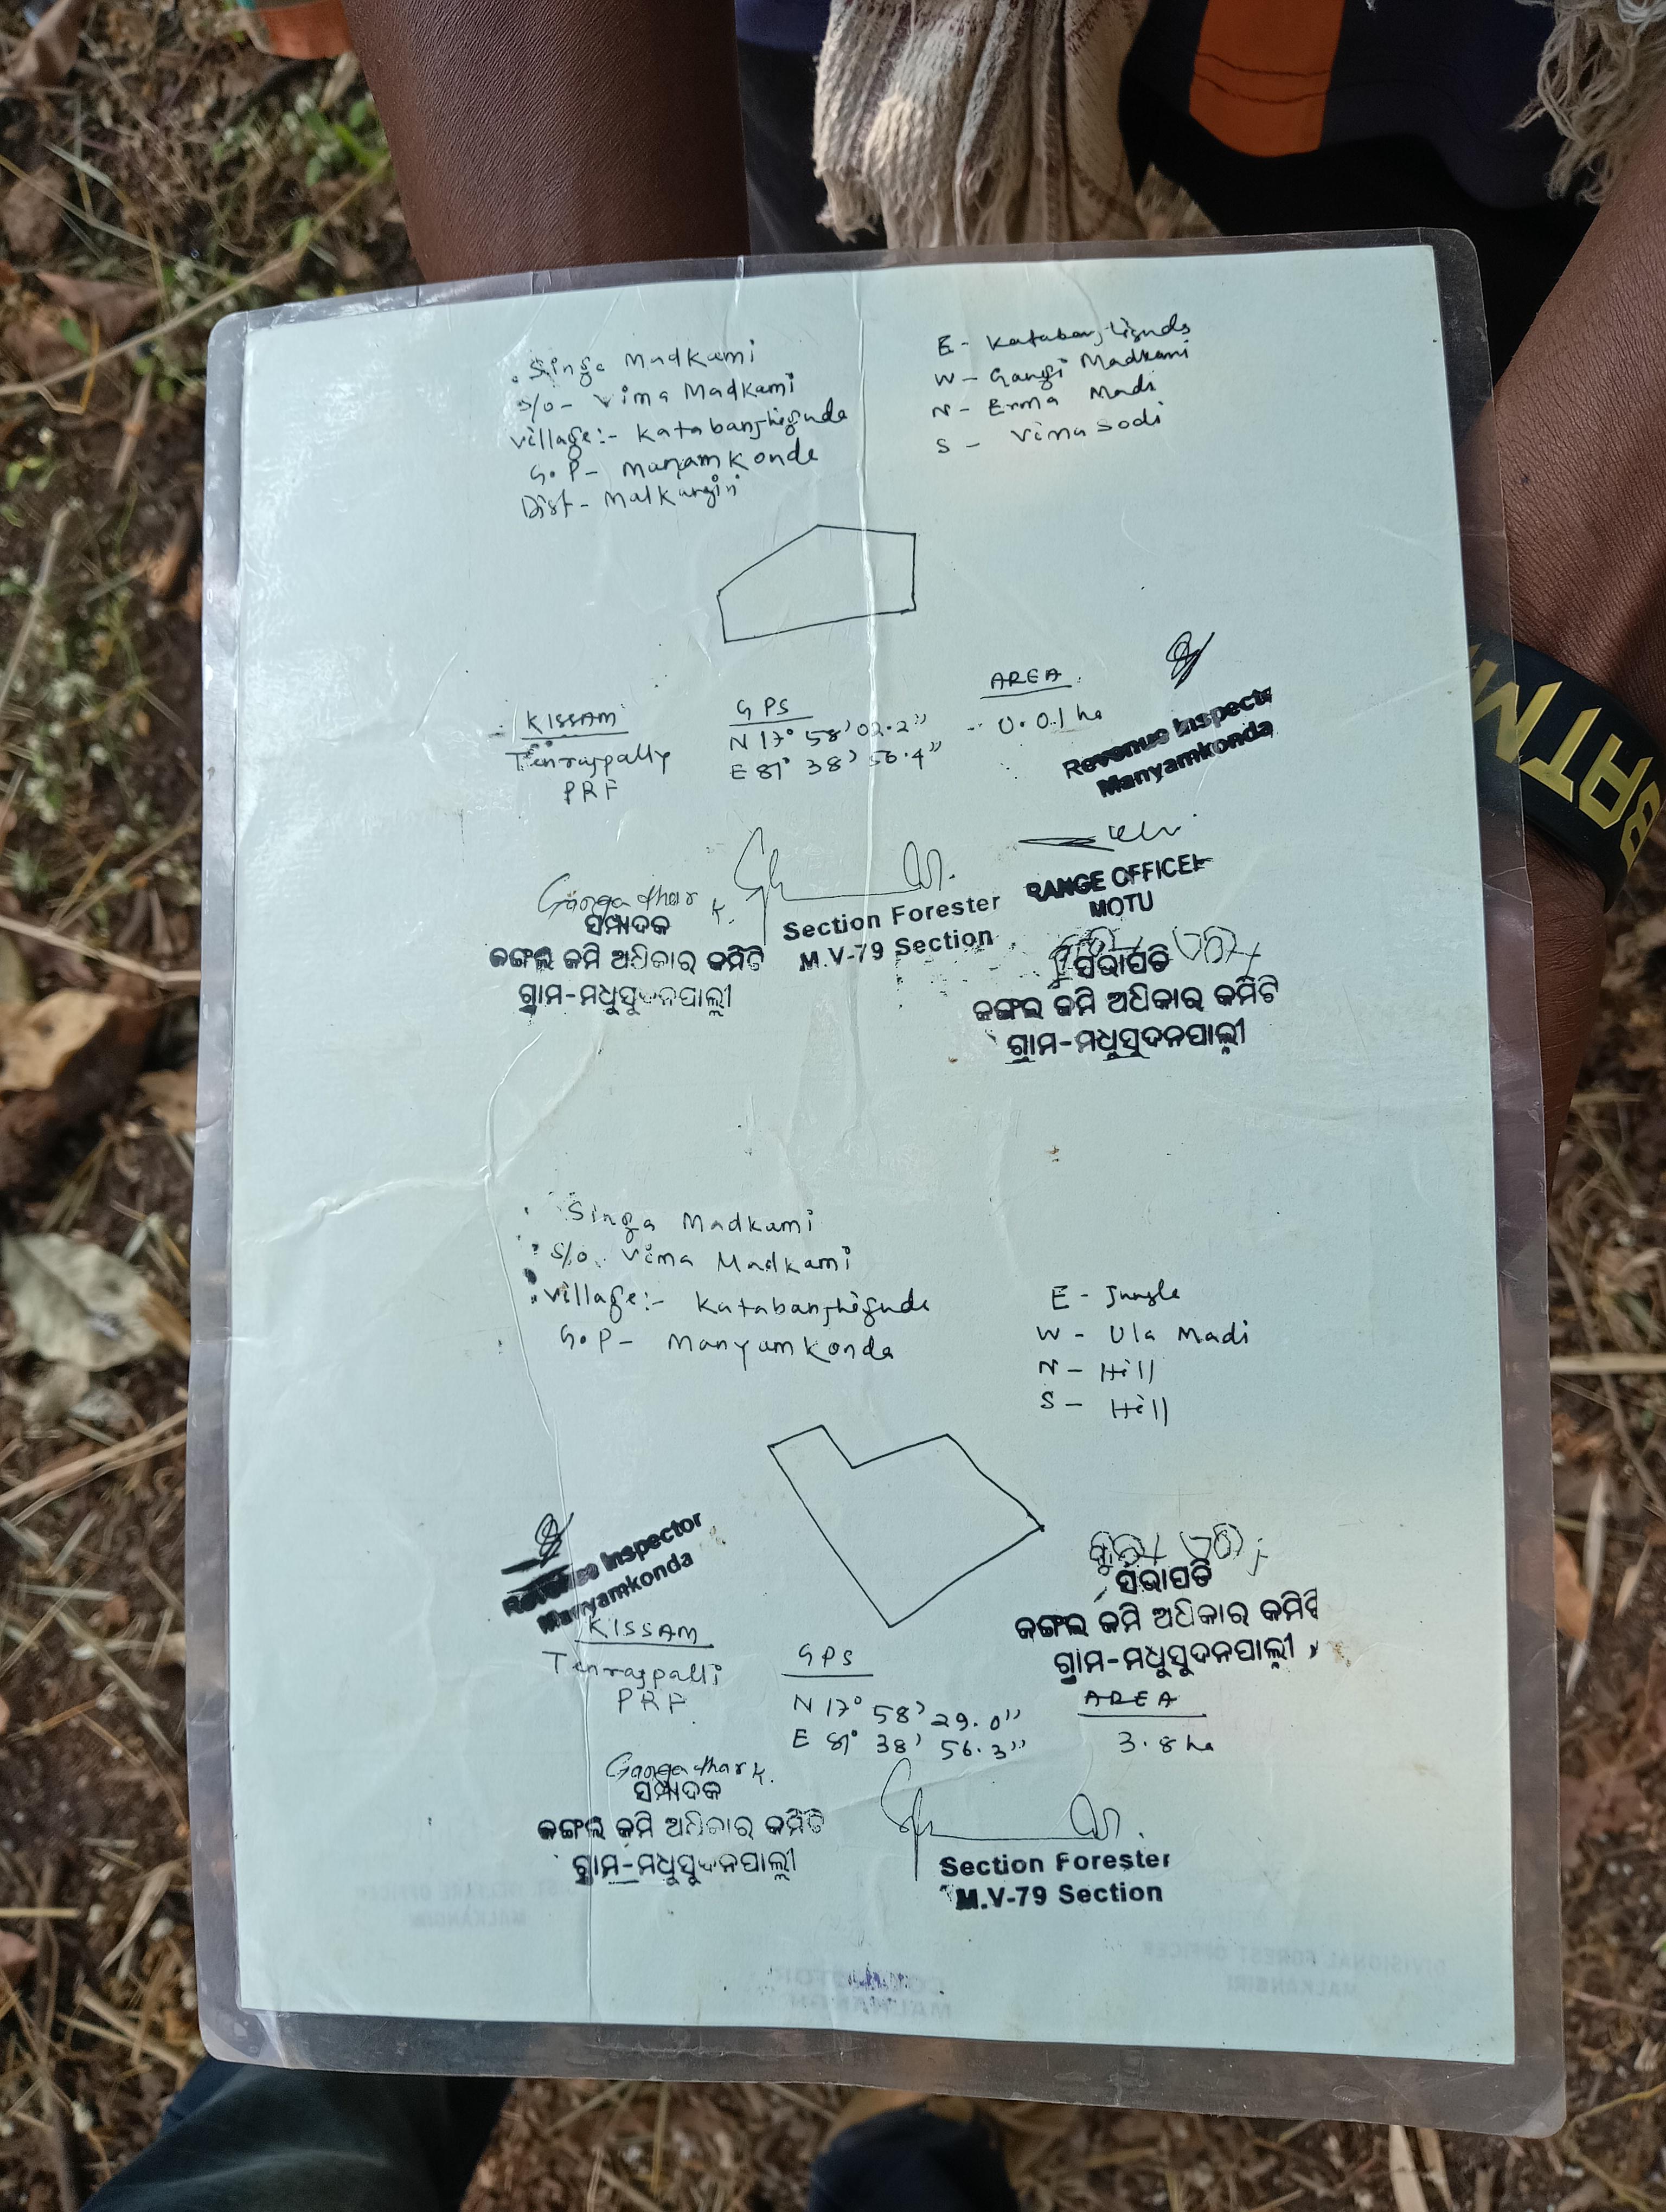 Singa Madkami
S/o- Vima Madkami
Village:- Katabanjheguda
G.P- Manyamkonda
Dist- Malkangiri
E- Katabanjhiguda
W- Gangi Madkami
N- Erma Madi
S- Vima Sodi
KISSAM
PRF
GPS
N 17° 58' 02.2"
E 81° 38' 56.4"
AREA
0.01 ha
Revenue Inspector
Manyamkonda
Gangadhar K.
ସମ୍ପାଦକ
ଜଙ୍ଗଲ ଜମି ଅଧିକାର କମିଟି
ଗ୍ରାମ-ମଧୁସୁଦନପାଲ୍ଲୀ
Section Forester
M.V-79 Section
RANGE OFFICER
MOTU
ସଭାପତି
ଜଙ୍ଗଲ ଜମି ଅଧିକାର କମିଟି
ଗ୍ରାମ-ମଧୁସୁଦନପାଲ୍ଲୀ
Singa Madkami
S/o. Vima Madkami
Village:- Katabanjheguda
G.P- Manyamkonda
E- Jungle
W- Ula Madi
N- Hill
S- Hill
Revenue Inspector
Manyamkonda
ସଭାପତି
ଜଙ୍ଗଲ ଜମି ଅଧିକାର କମିଟି
ଗ୍ରାମ-ମଧୁସୁଦନପାଲ୍ଲୀ
KISSAM
PRF
GPS
N 17° 58' 29.0"
E 81° 38' 56.3"
AREA
3.8 ha
Gangadhar K.
ସମ୍ପାଦକ
ଜଙ୍ଗଲ ଜମି ଅଧିକାର କମିଟି
ଗ୍ରାମ-ମଧୁସୁଦନପାଲ୍ଲୀ
Section Forester
M.V-79 Section